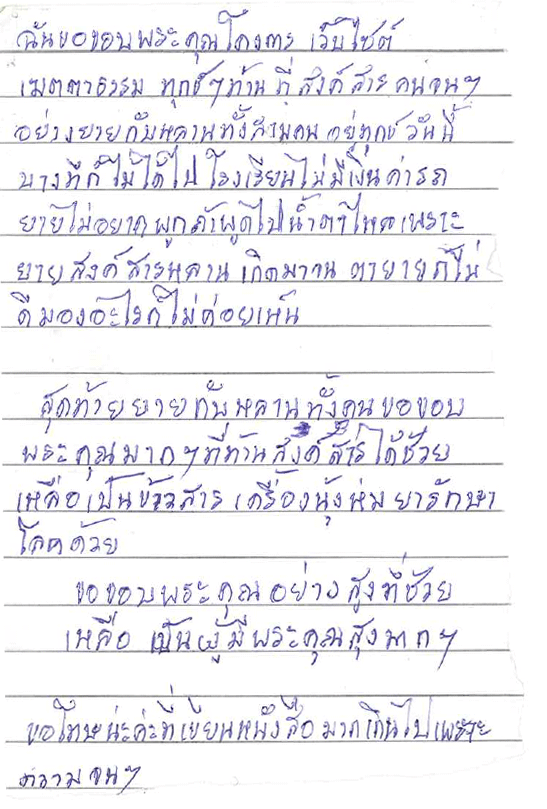 ฉันขอขอบพระคุณโคงการ เว็บไซต์
เมตตาธรรม ทุกข์ๆท่าน ที่ สงค์สาร คนจนๆ
อย่างยายกับหลานทั้งสามคน อยู่ทุกข์วันนี้
บางทีก็ไม่ได้ไปโรงเรียนไม่มีเงินค่ารถ
ยายไม่อยากพูกถ้าพูดไปน้ำตาไหลเพราะ
ยายสงค์สารหลานเกิดมาจน ตายายก็ไม่
ดีมองอะไรก็ไม่ค่อยเห็น
สุดท้ายยายกับหลานทั้งคนขอขอบ
พระคุณมากๆที่ท่านสงค์สารได้ช้วย
เหลือเป็นข้าวสารเครื่องนุ้งห่มยารักษา
โลคด้วย
ขอขอบพระคุณอย่างสูงที่ช้วย
เหลือ เป็นผู้มีพระคุณสุงมากๆ
ขอโทษน่ะค่ะที่เขียนหนังสือมากเกินไปเพราะ
ความจนๆ